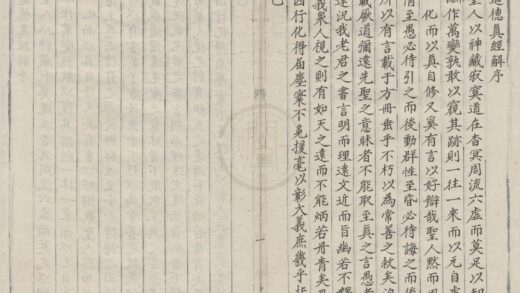 道德真經解序
聖人以神藏寂寞道在杳冥周流六虛而莫足以知
酬作萬變孰敢以窺其跡則一往一來而以元自
化而以真自修又奚有言以好辯哉聖人黙而
情至愚必待引之而後動群性至昏必待誨之而後
所以有言載于方冊垂乎不朽以為常善之救矣
載厥道彌遠先聖之意昧者不能取至真之言愚者
達況我老君之書言明而理遠文近而旨幽若不釋
我衆人視之則有如天之遠而不能炳若丹青矣
因行化得屆塵寰不免援毫以彰大義庶幾乎
已
一